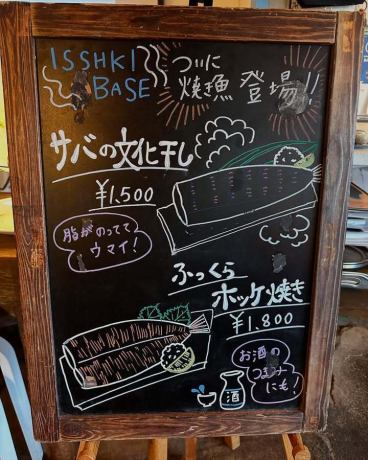 ISSHKI
BASE
ついに
焼魚登場!
サバの文化干し
¥1,500
脂がのってて
ウマイ!
ふっくら
ホッケ焼き
¥1,800
お酒の
つまみ
にも!
酒